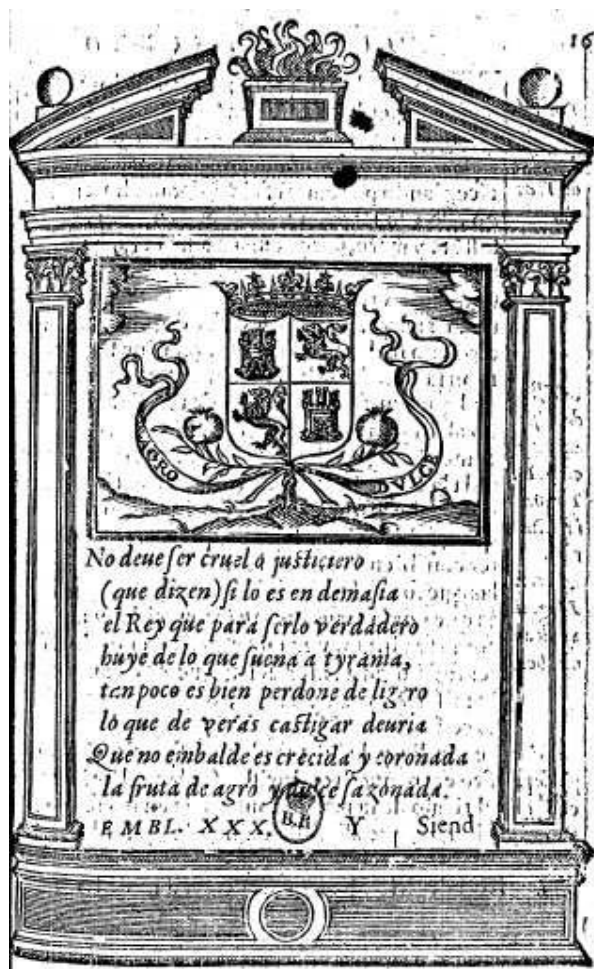 16
AGRO DVLCE
No deue ſer cruel o juſticiero
(que dizen) ſi lo es en demaſia
el Rey que para ſerlo verdadero
huye de lo que ſuena a tyrania,
tanpoco es bien perdone de ligero
lo que de veras caſtigar deuria
Que no embalde es crecida y coronada
la fruta de agro y dulce ſazonada.
EMBL. XXX. B.R Y Siend